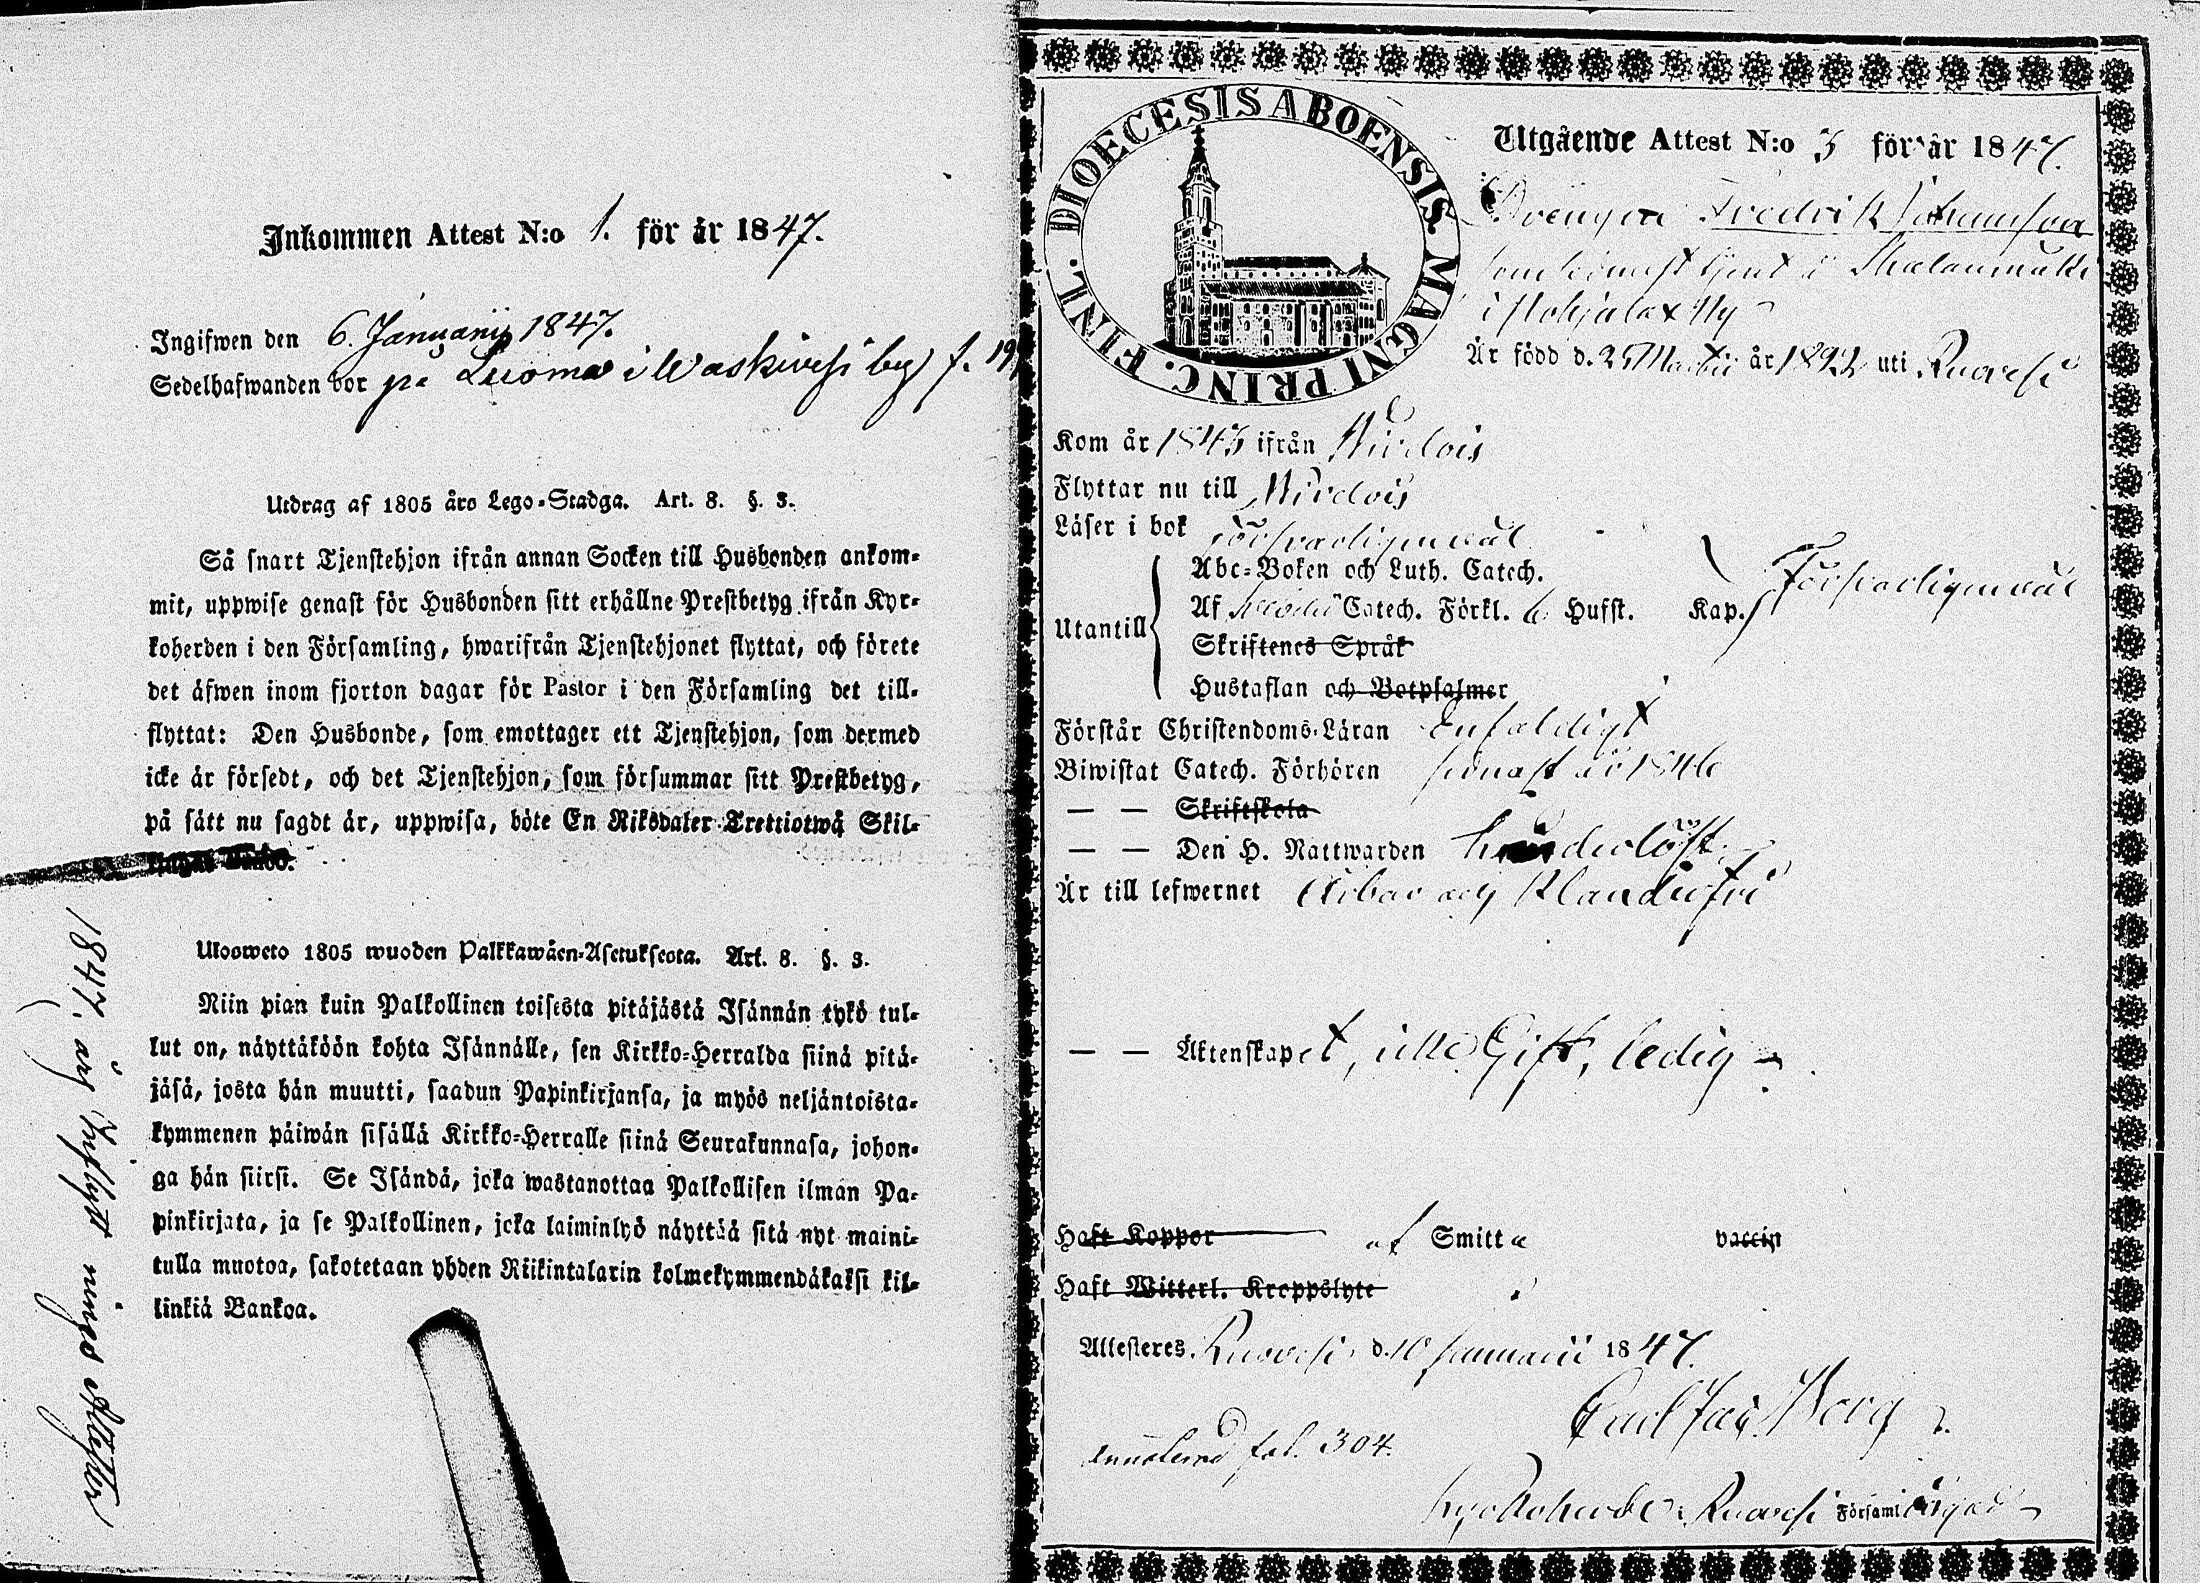 Inkommen Attest N:o 1. för år 1847.
Ingifwen den 6. Januarii 1847.
Sedelhafwanden bor på Luoma i Waskivesi by f. 19
Utdrag af 1805 års Lego-Stadga. Art. 8. §. 3.
Så snart Tjenstehjon ifrån annan Socken till Husbonden ankom-
mit, uppwise genast för Husbonden sitt erhållne Prestbetyg ifrån Kyr-
koherden i den Församling, hwarifrån Tjenstehjonet flyttat, och förete
det äfwen inom fjorton dagar för Pastor i den Församling det till-
flyttat: Den Husbonde, som emottager ett Tjenstehjon, som dermed
icke är försedt, och det Tjenstehjon, som försummar sitt Prestbetyg,
på sätt nu sagdt är, uppwisa, böte En Riksdaler Trettiotwå Skil-
lingar Banco.
Ulosweto 1805 wuoden Palkkawäen-Asetuksesta. Art. 8. §. 3.
Niin pian kuin Palkollinen toisesta pitäjästä Isännän tykö tul-
lut on, näyttäköön kohta Isännälle, sen Kirkko-Herralda siinä pitä-
jäsä, josta hän muutti, saadun Papinkirjansa, ja myös neljäntoista-
kymmenen päiwän sisällä Kirkko-Herralle siinä Seurakunnasa, johon-
ga hän siirsi. Se Isändä, joka wastanottaa Palkollisen ilman Pa-
pinkirjata, ja se Palkollinen, joka laiminlyö näyttää sitä nyt maini-
tulla muotoa, sakotetaan yhden Riikintalarin kolmekymmendäkaksi kil-
linkiä Bankoa.
1847. års Inflyttnings Attester
DIOECESIS ABOENSIS MAGNI PRINC. FINL.
Utgående Attest N:o 3 för år 1847.
Drengen Fredrik Johansson
som sednast tjent å
i Pohjala by
Är född d. 25 Martii år 1822 uti Ruovesi
Kom år 1843 ifrån Wirdois
Flyttar nu till Wirdois
Läser i bok försvarligen väl
Utantill
Abc-Boken och Luth. Catech.
Af Svebelii Catech. Förkl. 6 Hufst. Kap. Försvarligen väl
Skriftenes Språk
Hustaflan och Botpsalmer
Förstår Christendoms-Läran Enfaldigt
Biwistat Catech. Förhören senast år 1846
— — Skriftskola
— — Den H. Nattwarden hinderlöst
Är till lefwernet Ärbar och Klanderfri
— — Äktenskapet, icke Gift, ledig
Haft Koppor af Smitta vaccin
Haft Witterl. Kroppslyte
Attesteres. Ruovesi d. 10 Januarii 1847.
Carl Jac. Berg
fol. 304.
Kyrkoherde i Ruovesi Församling